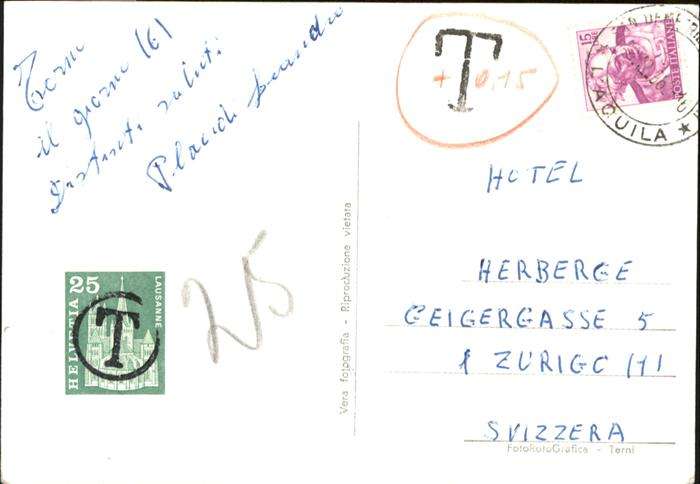 Torno
il giorno 16)
Distinti saluti
Placido Leandro
T
+ 0,15
POSTE ITALIANE
L'AQUILA ★
HOTEL
HERBERGE
GEIGERGASSE 5
1 ZURIGO (H)
SVIZZERA
25
HELVETIA
LAUSANNE
T
25
Vera fotografia - Riproduzione vietata
FotoRotoGrafica - Terni